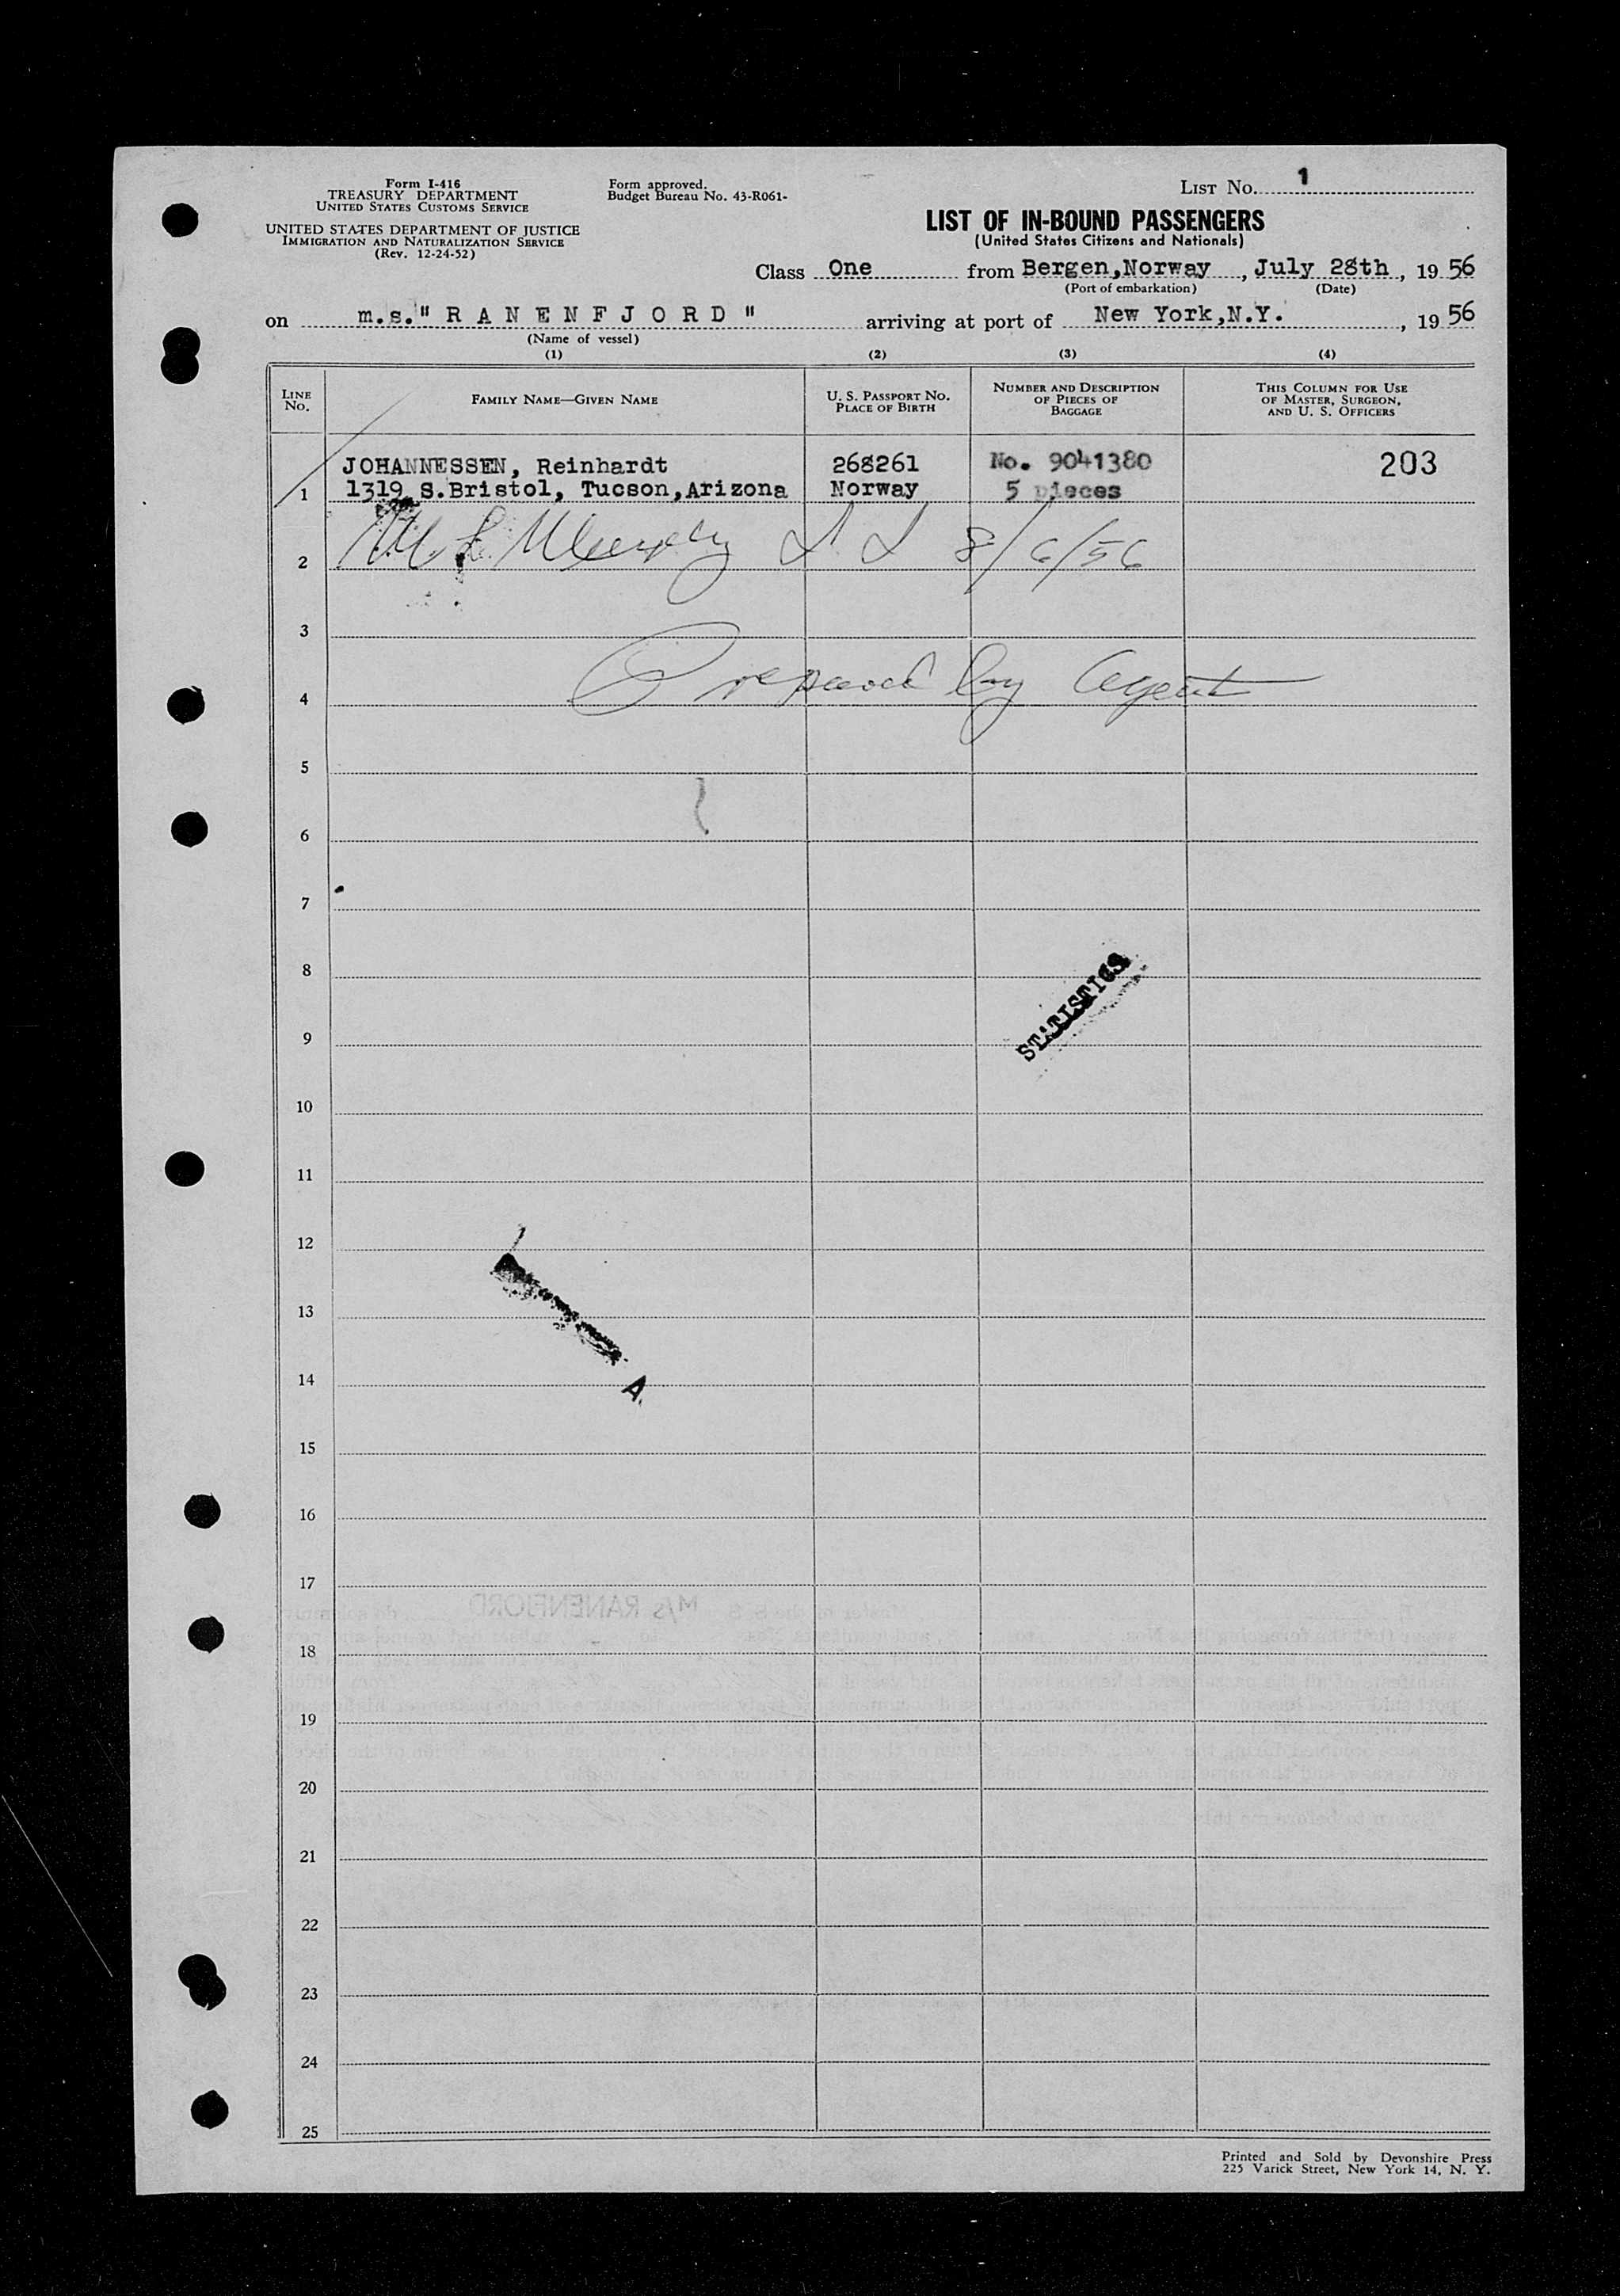 Form I-416
TREASURY DEPARTMENT
UNITED STATES CUSTOMS SERVICE
UNITED STATES DEPARTMENT OF JUSTICE
IMMIGRATION AND NATURALIZATION SERVICE
(Rev. 12-24-52)
Form approved.
Budget Bureau No. 43-R061-
LIST NO. 1
LIST OF IN-BOUND PASSENGERS
(United States Citizens and Nationals)
Class One from Bergen,Norway, July 28th, 1956
(Port of embarkation) (Date)
on m.s." R A N E N F J O R D " arriving at port of New York,N.Y., 1956
(Name of vessel)
(1) (2) (3) (4)
LINE NO. FAMILY NAME—GIVEN NAME U. S. PASSPORT NO. PLACE OF BIRTH NUMBER AND DESCRIPTION OF PIECES OF BAGGAGE THIS COLUMN FOR USE OF MASTER, SURGEON, AND U. S. OFFICERS
JOHANNESSEN, Reinhardt 268261 No. 9041380 203
1 1319 S.Bristol, Tucson,Arizona Norway 5 pieces
2 Murphy 8/6/56
3
4 Prepared by Agent
5
6
7
8
STATISTICS
9
10
11
12
13
14 A.
15
16
17
M/S RANENFJORD
18
19
20
21
22
23
24
25
Printed and Sold by Devonshire Press
225 Varick Street, New York 14, N. Y.